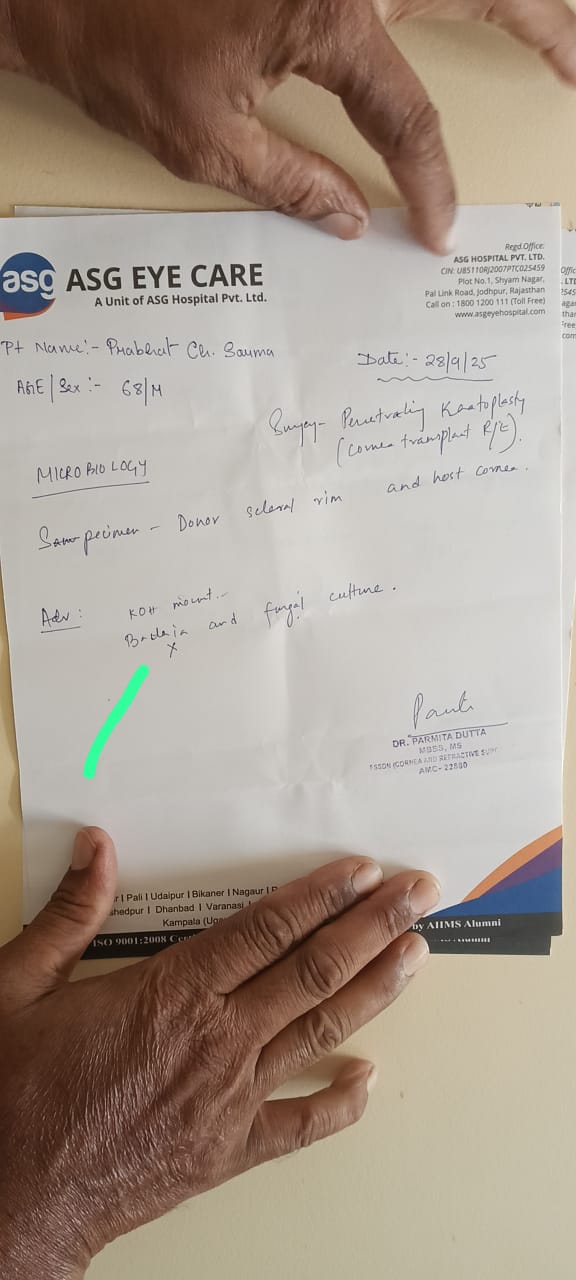 asg ASG EYE CARE
A Unit of ASG Hospital Pvt. Ltd.
Regd.Office:
ASG HOSPITAL PVT. LTD.
CIN: U85110RJ2007PTC025459
Plot No.1, Shyam Nagar,
Pal Link Road, Jodhpur, Rajasthan
Call on : 1800 1200 111 (Toll Free)
www.asgeyehospital.com
Pt Name:- Prabhat Ch. Sarma
Date:- 28/9/25
AGE/Sex :- 68/M
Surgery- Penetrating Keratoplasty
(Cornea transplant R/E).
MICROBIOLOGY
Specimen - Donor scleral rim and host cornea.
Adv: KOH mount.
Bacteria and fungal culture.
x
DR. PARMITA DUTTA
MBBS, MS
(CORNEA AND REFRACTIVE
AMC- 22880
Pali I Udaipur I Bikaner I Nagaur I
Dhanbad I Varanasi
Kampala
ISO 9001:2008
by AIIMS Alumni